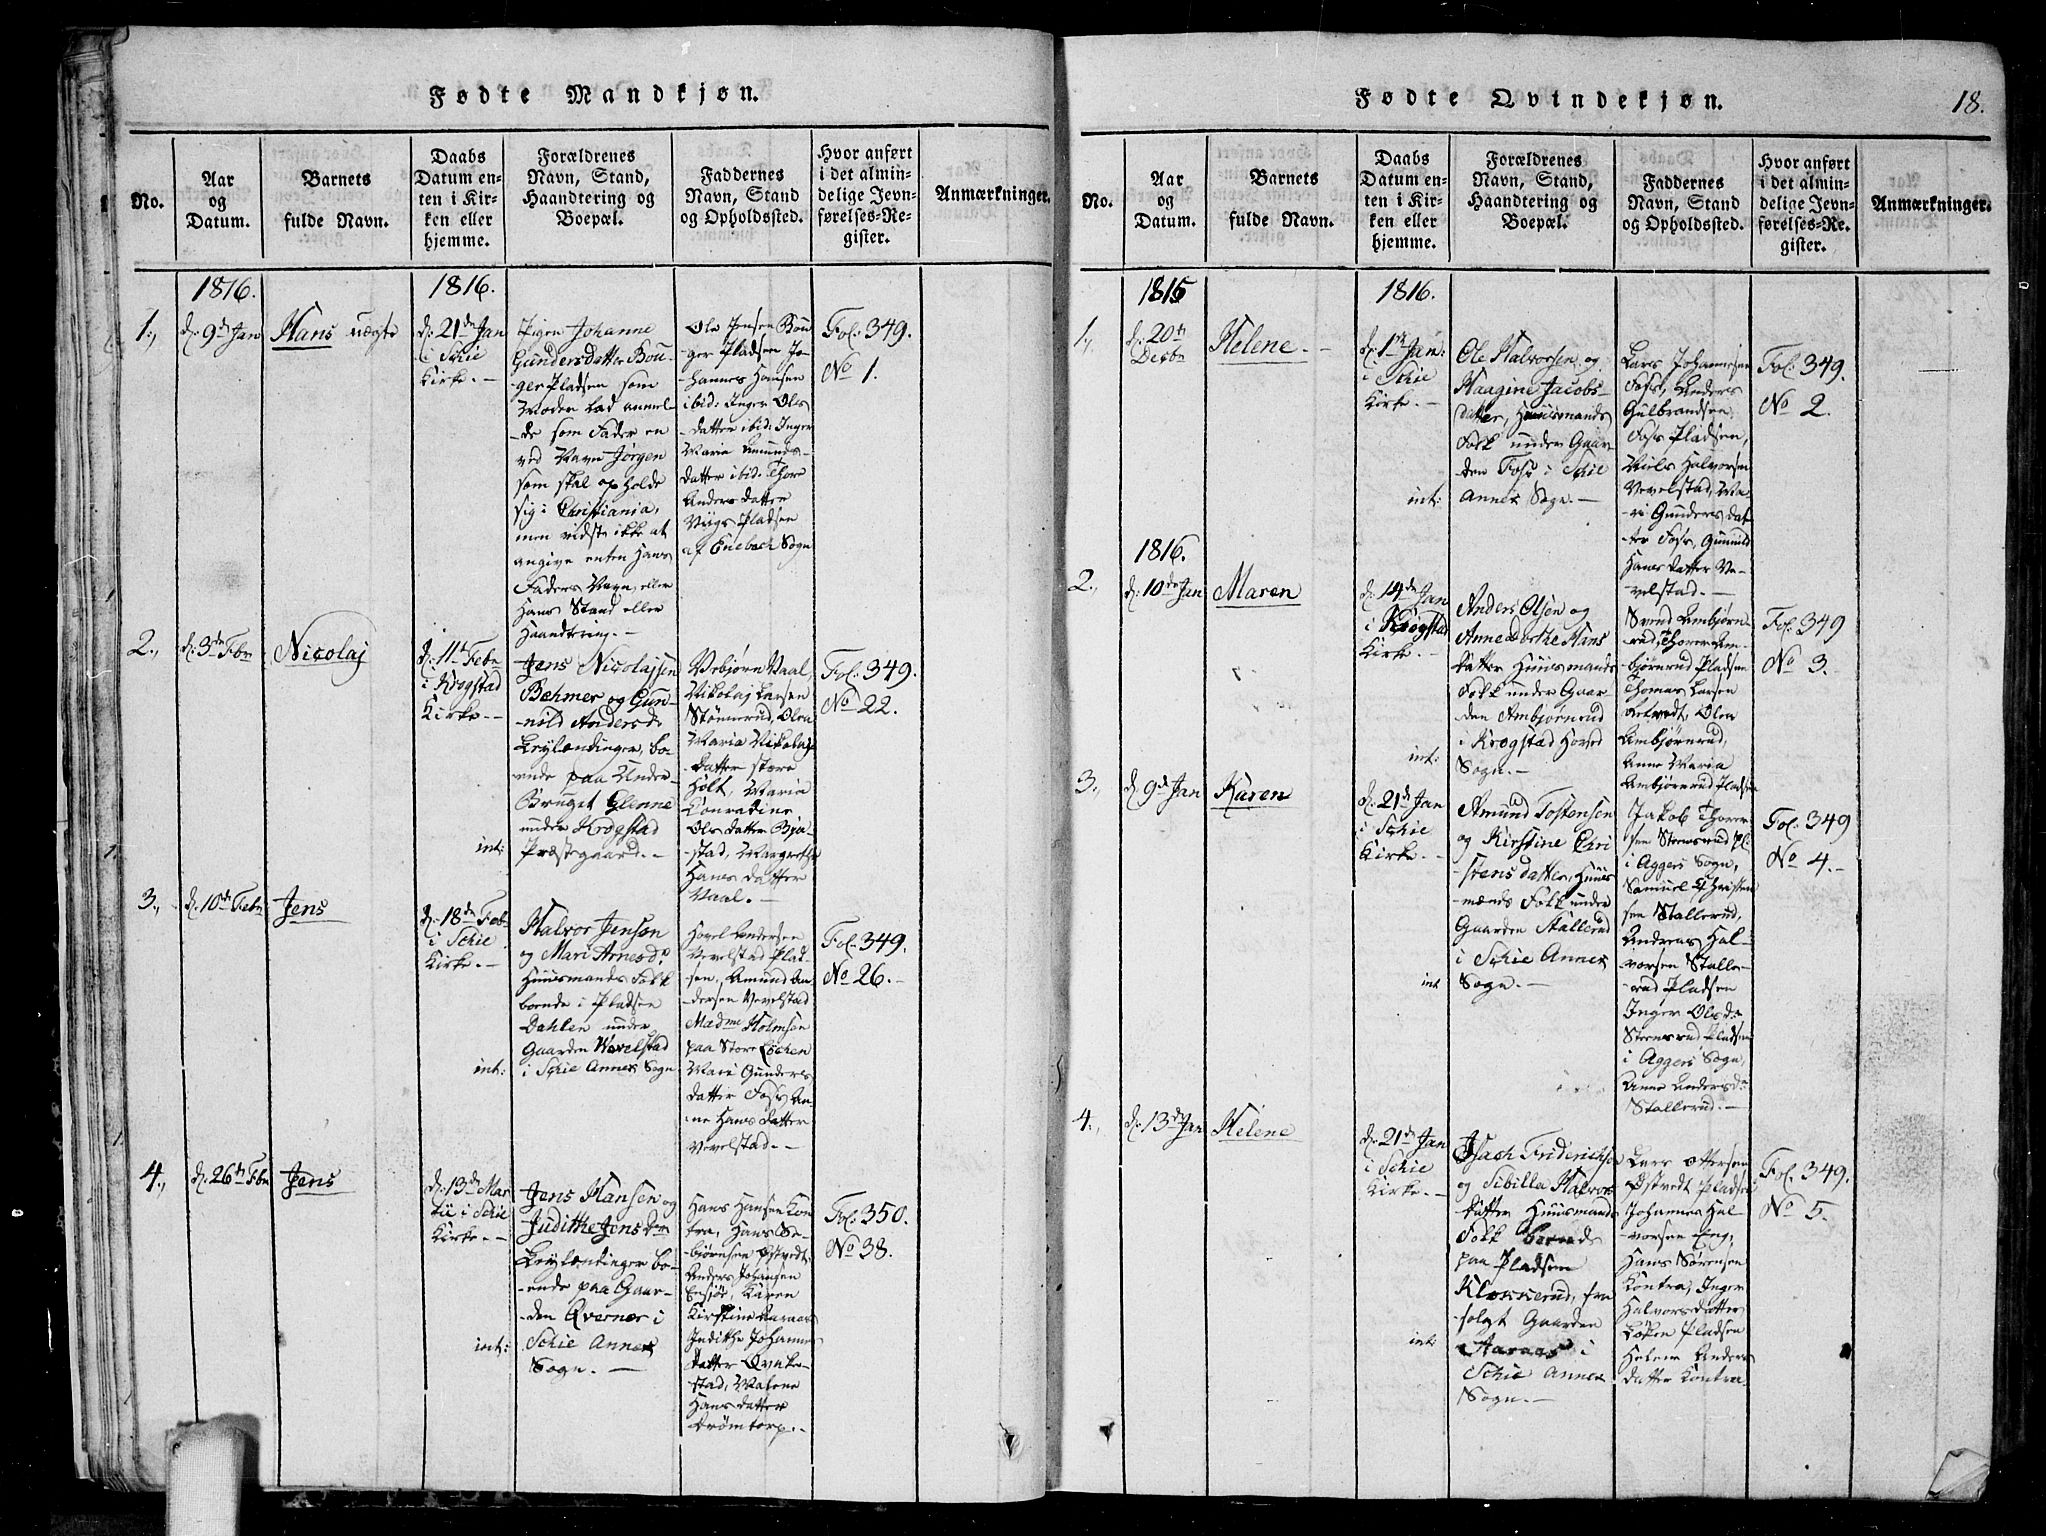 Fødte Mandkjøn.
No.
Aar
og
Datum.
Barnets
fulde Navn.
Daabs
Datum en-
ten i Kir-
ken eller
hjemme.
Forældrenes
Navn, Stand,
Haandtering og
Boepæl.
Faddernes
Navn, Stand
og Opholdssted.
Hvor anført
i det almin-
delige Jevn-
førelses-Re-
gister.
Anmærkninger.
1816.
1816.
1.,
d: 9de Jan
Hans uægte
d: 21de Jan
i Schie
Kirke. -
Pigen Johanne
Gundersdatter Bou-
ger Pladsen som
Moder lod anmel-
de som Fader en
ved Navn Jørgen
som skal opholde
sig i Christiania,
men vidste ikke at
angive enten Hans
Faders Navn eller
Hans Stand eller
Haandtering. -
Ole Jensen Bou
ger Pladsen Jo-
hannes Hansen
ibid: Inger Ols
datter ibid: Inger
Maria Amunds-
datter ibid: Thore
Anders datter
Viigs Pladsen
af Enebach Sogn
Fol: 349.
No 1.
2.,
d: 3de Febr
Nicolaj
d: 11te Febr
i Krogstad
Kirke. -
Jens Nicolajsen
Behmer og Gun-
nild Andersdr
Leylændinger, bo-
ende paa Under-
Bruget Glenne
under Krogstad
int: Præstegaard. -
Vebjørn Vaal,
Nikolaj Larsen
Stønnerud, Olea
Maria Nikolaj
datter store
Holt, Maria
Conradine
Ols datter Bja-
stad, Margrethe
Hans datter
Vaal. -
Fol: 349.
No 22.
3.,
d: 10de Febr
Jens
d: 18de Feb
i Schie
Kirke. -
Halvor Jenson
og Mari Arnesdr
Huusmands Folk
boende i Pladsen
Dahlen under
Gaarden Wevelstad
int: i Schie Annex Sogn
Hovel Andersen
Vevelstad Plad-
sen, Amund An-
dersen Vevelstad
Madme Holmsen
paa Store
Mari Gunders
datter Foss An-
ne Hans datter
Vevelstad. -
Fol: 349.
No 26. -
4.,
d: 26te Fbr
Jens
d: 13de Mar
tii i Schie
Kirke. -
Jens Hansen og
Judithe Jens dr
Leylændinger bo-
ende paa Gaar-
den Qvernes i
int: Schie Annex
Sogn. -
Hans Hansen Kon
tra, Hans
bjørnsen Østvedt,
Anders Johansen
Karen
Kirstine Aaraas
Judithe Johannes
datter Qvake-
stad, Malene
Hans datter
Drømtorp. -
Fol: 350.
No 38.
Fødte Qvindekjøn.
18.
No.
Aar
og
Datum.
Barnets
fulde Navn.
Daabs
Datum en-
ten i Kir-
ken eller
hjemme.
Forældrenes
Navn, Stand,
Haandtering og
Boepæl.
Faddernes
Navn, Stand
og Opholdssted.
Hvor anført
i det almin-
delige Jevn-
førelses-Re-
gister.
Anmærkninger.
1815
1816.
1.,
d: 20te
Decbr
Helene. -
d: 1ste Jan:
i Schie
Kirke. -
Ole Halvorsen og
Haagine Jacobs-
datter, Huusmands
Folk under Gaar
den Foss i Schie
int: Annex Sogn. -
Lars Johannesen
Foss, Anders
Gulbrandsen,
Foss Pladsen,
Niels Halvorsen
Vevelstad, Ma-
ri Gunders dat
ter Foss, Gunnild
Hans datter Ve-
velstad. -
Fol: 349.
No 2.
1816.
2.,
d: 10de Jan
Maren
d: 14de Jan
i Krogstad
Kirke. -
Anders Olsen og
Anne Dorthe Hans
datter Huusmands
Folk under Gaar
den Ambjørnrud
i Krogstad Hoved
int: Sogn. -
Svend Ambjørn-
rud, Thorer Am-
bjørnrud Pladsen
Thomas Larsen
Olea
Ambjørnrud,
Anne Maria
Ambjørnrud Pladsen
Fol: 349
No 3. -
3.,
d: 9de Jan
Karen
d: 21de Jan
i Schie
Kirke. -
Amund Tostensen
og Kirstine Chri
stens datter, Huus
mænds Folk under
Gaarden Stallerud
i Schie Annex
int Sogn. -
Jakob Thorer
sen Steensrud Pl:
i Aggers Sogn,
Samuel Christen
sen Stallerud,
Andreas Hal-
vorsen Stalle-
rud Pladsen
Inger Ols dr
Steensrud Pladsen
i Aggers Sogn,
Anne Anders dr
Stallerud. -
Fol: 349
No 4. -
4.,
d: 13de Jan
Helene
d: 21de Jan
i Schie
Kirke. -
Isach Friderichsen
og Sibilla Halvors
datter Huusmands
Folk boende
paa Pladsen
Klokkerud, fra
solgt Gaarden
int: Aaraas i
Schie Annex
Sogn. -
Lars Ottersen
Østvedt Pladsen
Johannes Hal-
vorsen Eng,
Hans Sørensen
Kontra, Inger
Halvorsdatter
Løken Pladsen
Helene Anders
datter Kontra.
Fol: 349.
No 5.